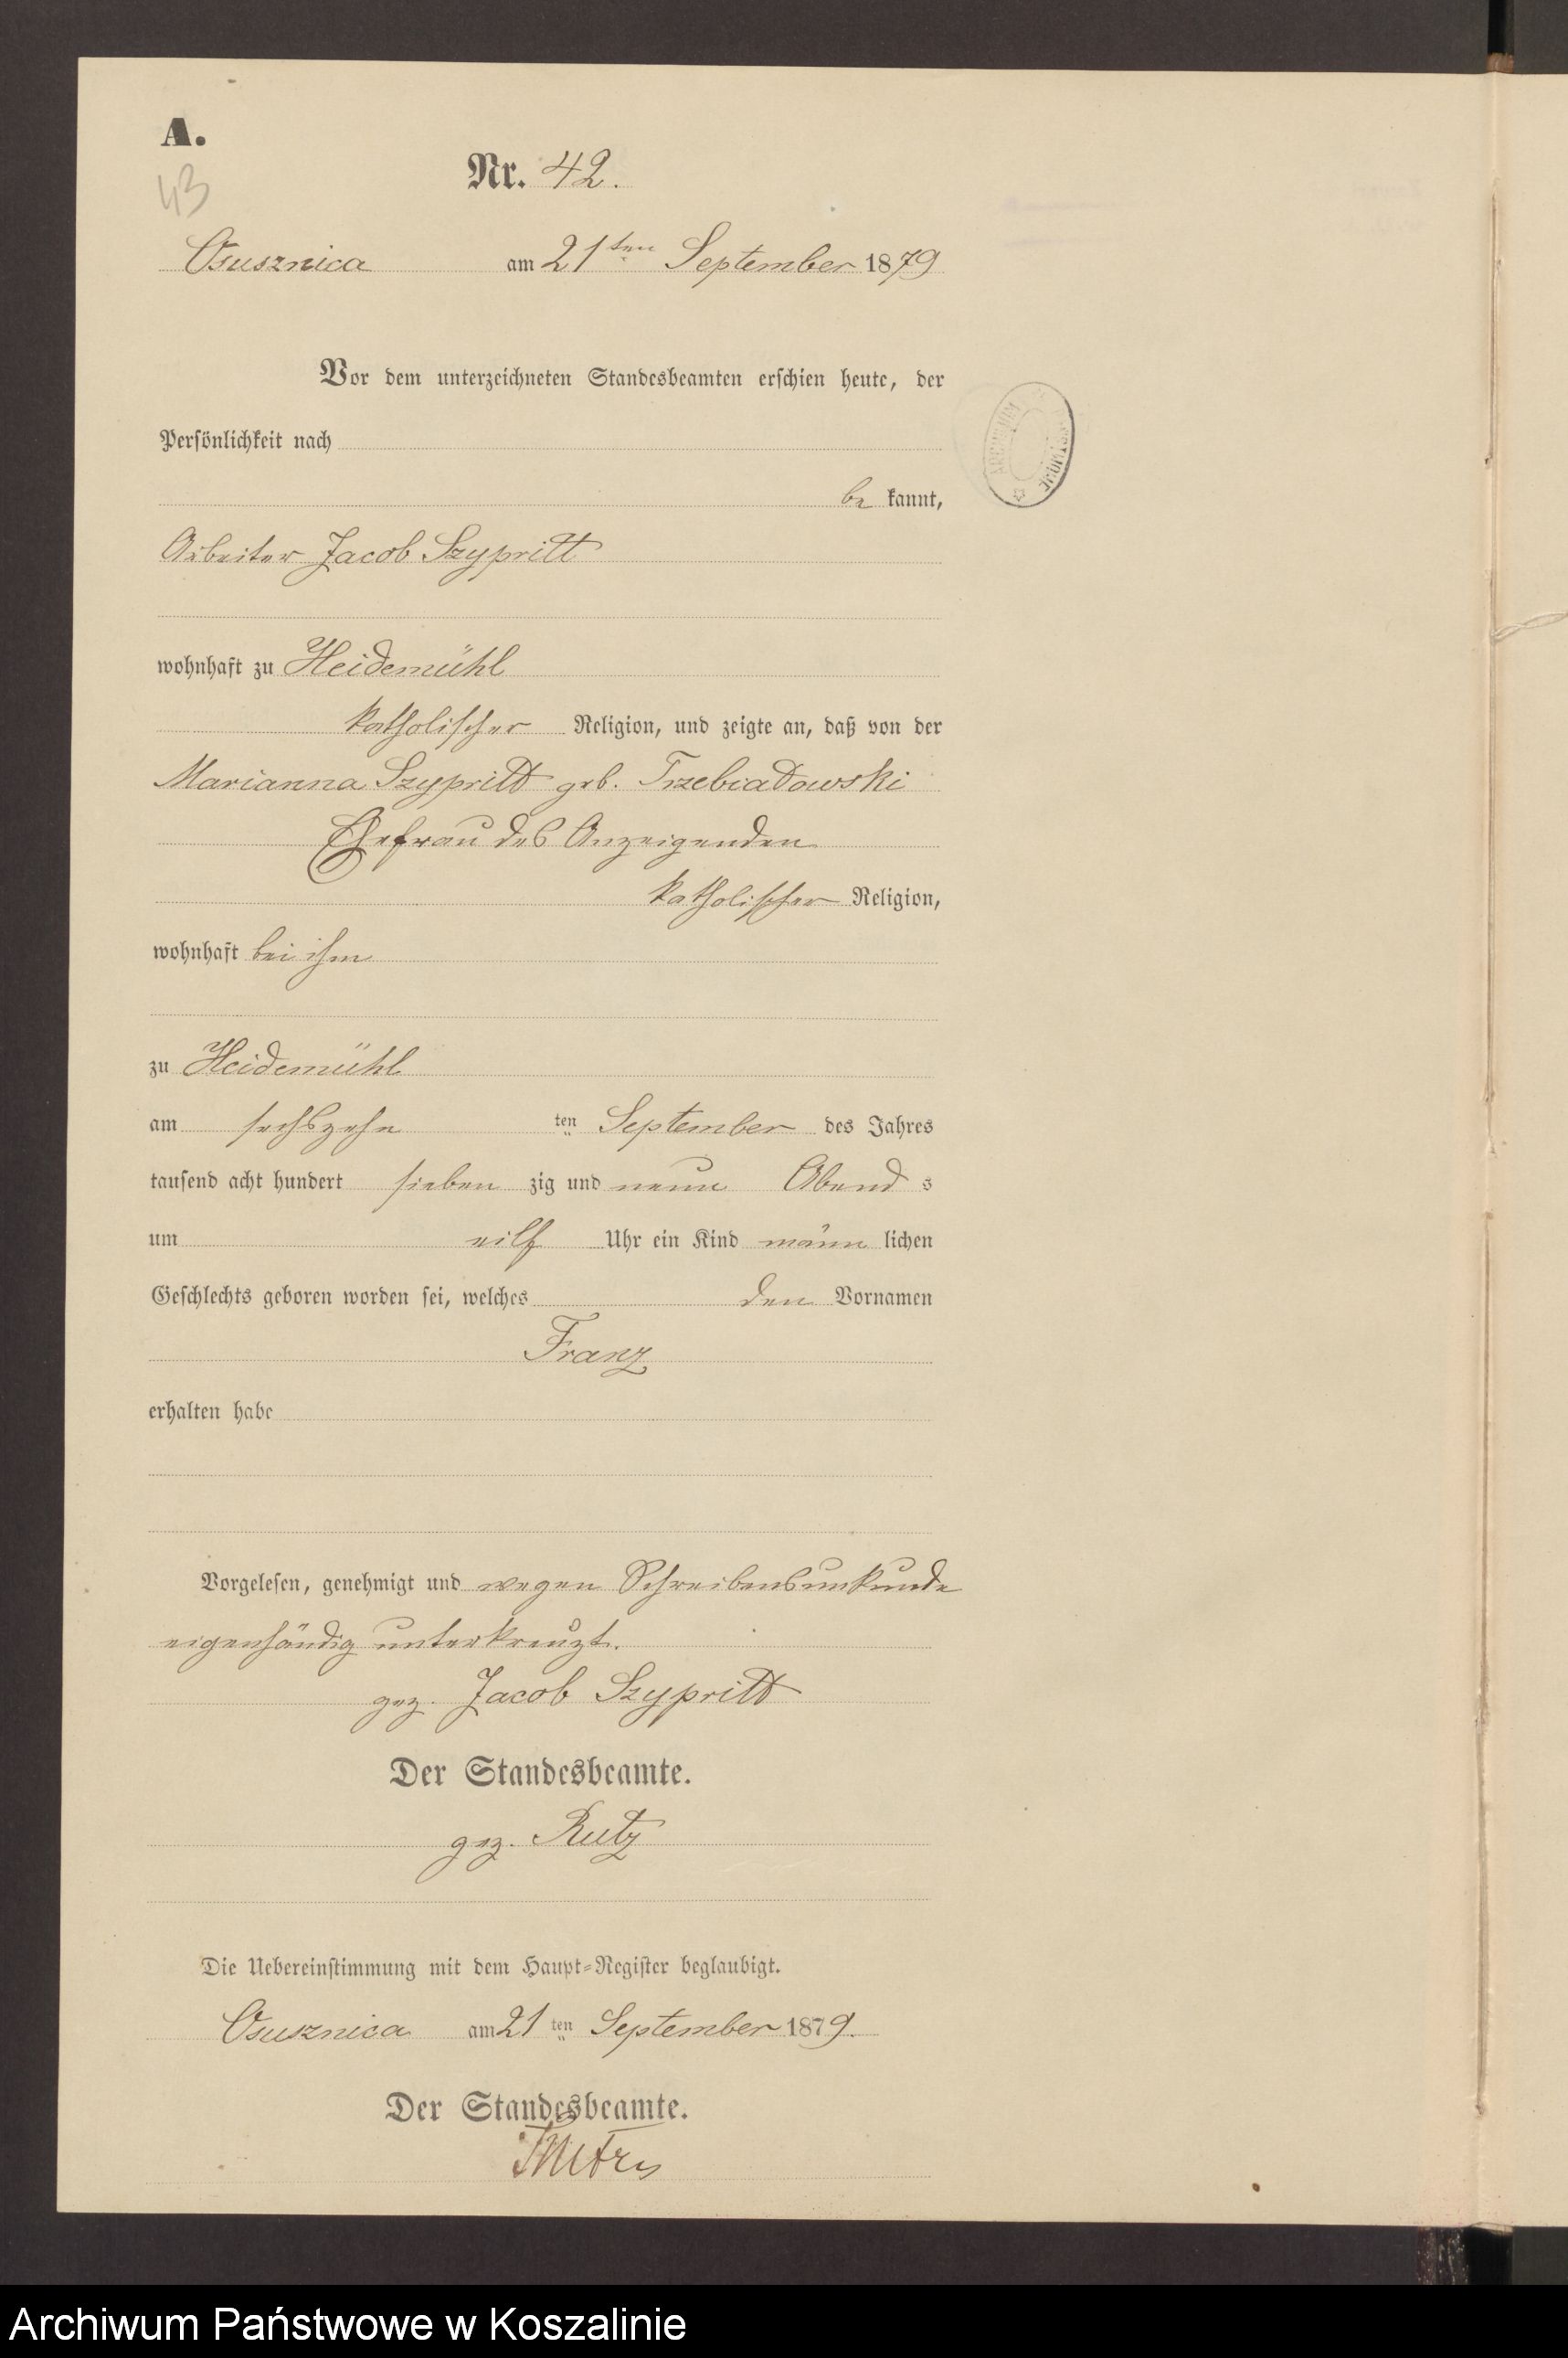 A.
43
Nr. 42.
Osusznica am 21ten September 1879
Vor dem unterzeichneten Standesbeamten erschien heute, der
Persönlichkeit nach
be kannt,
Arbeiter Jacob Szypritt
wohnhaft zu Heidemühl
katholischer Religion, und zeigte an, daß von der
Marianna Szypritt geb. Trzebiadowski
Ehefrau des Anzeigenden
katholischer Religion,
wohnhaft bei ihm
zu Heidemühl
am sechszehn ten September des Jahres
tausend acht hundert sieben zig und neun Abend s
um eilf Uhr ein Kind männ lichen
Geschlechts geboren worden sei, welches den Vornamen
Franz
erhalten habe
Vorgelesen, genehmigt und wegen Schreibensunkunde
eigenhändig unterkreuzt.
gez. Jacob Szypritt
Der Standesbeamte.
gez. Rutz
Die Uebereinstimmung mit dem Haupt-Register beglaubigt.
Osusznica am 21 ten September 1879.
Der Standesbeamte.
Archiwum Państwowe w Koszalinie